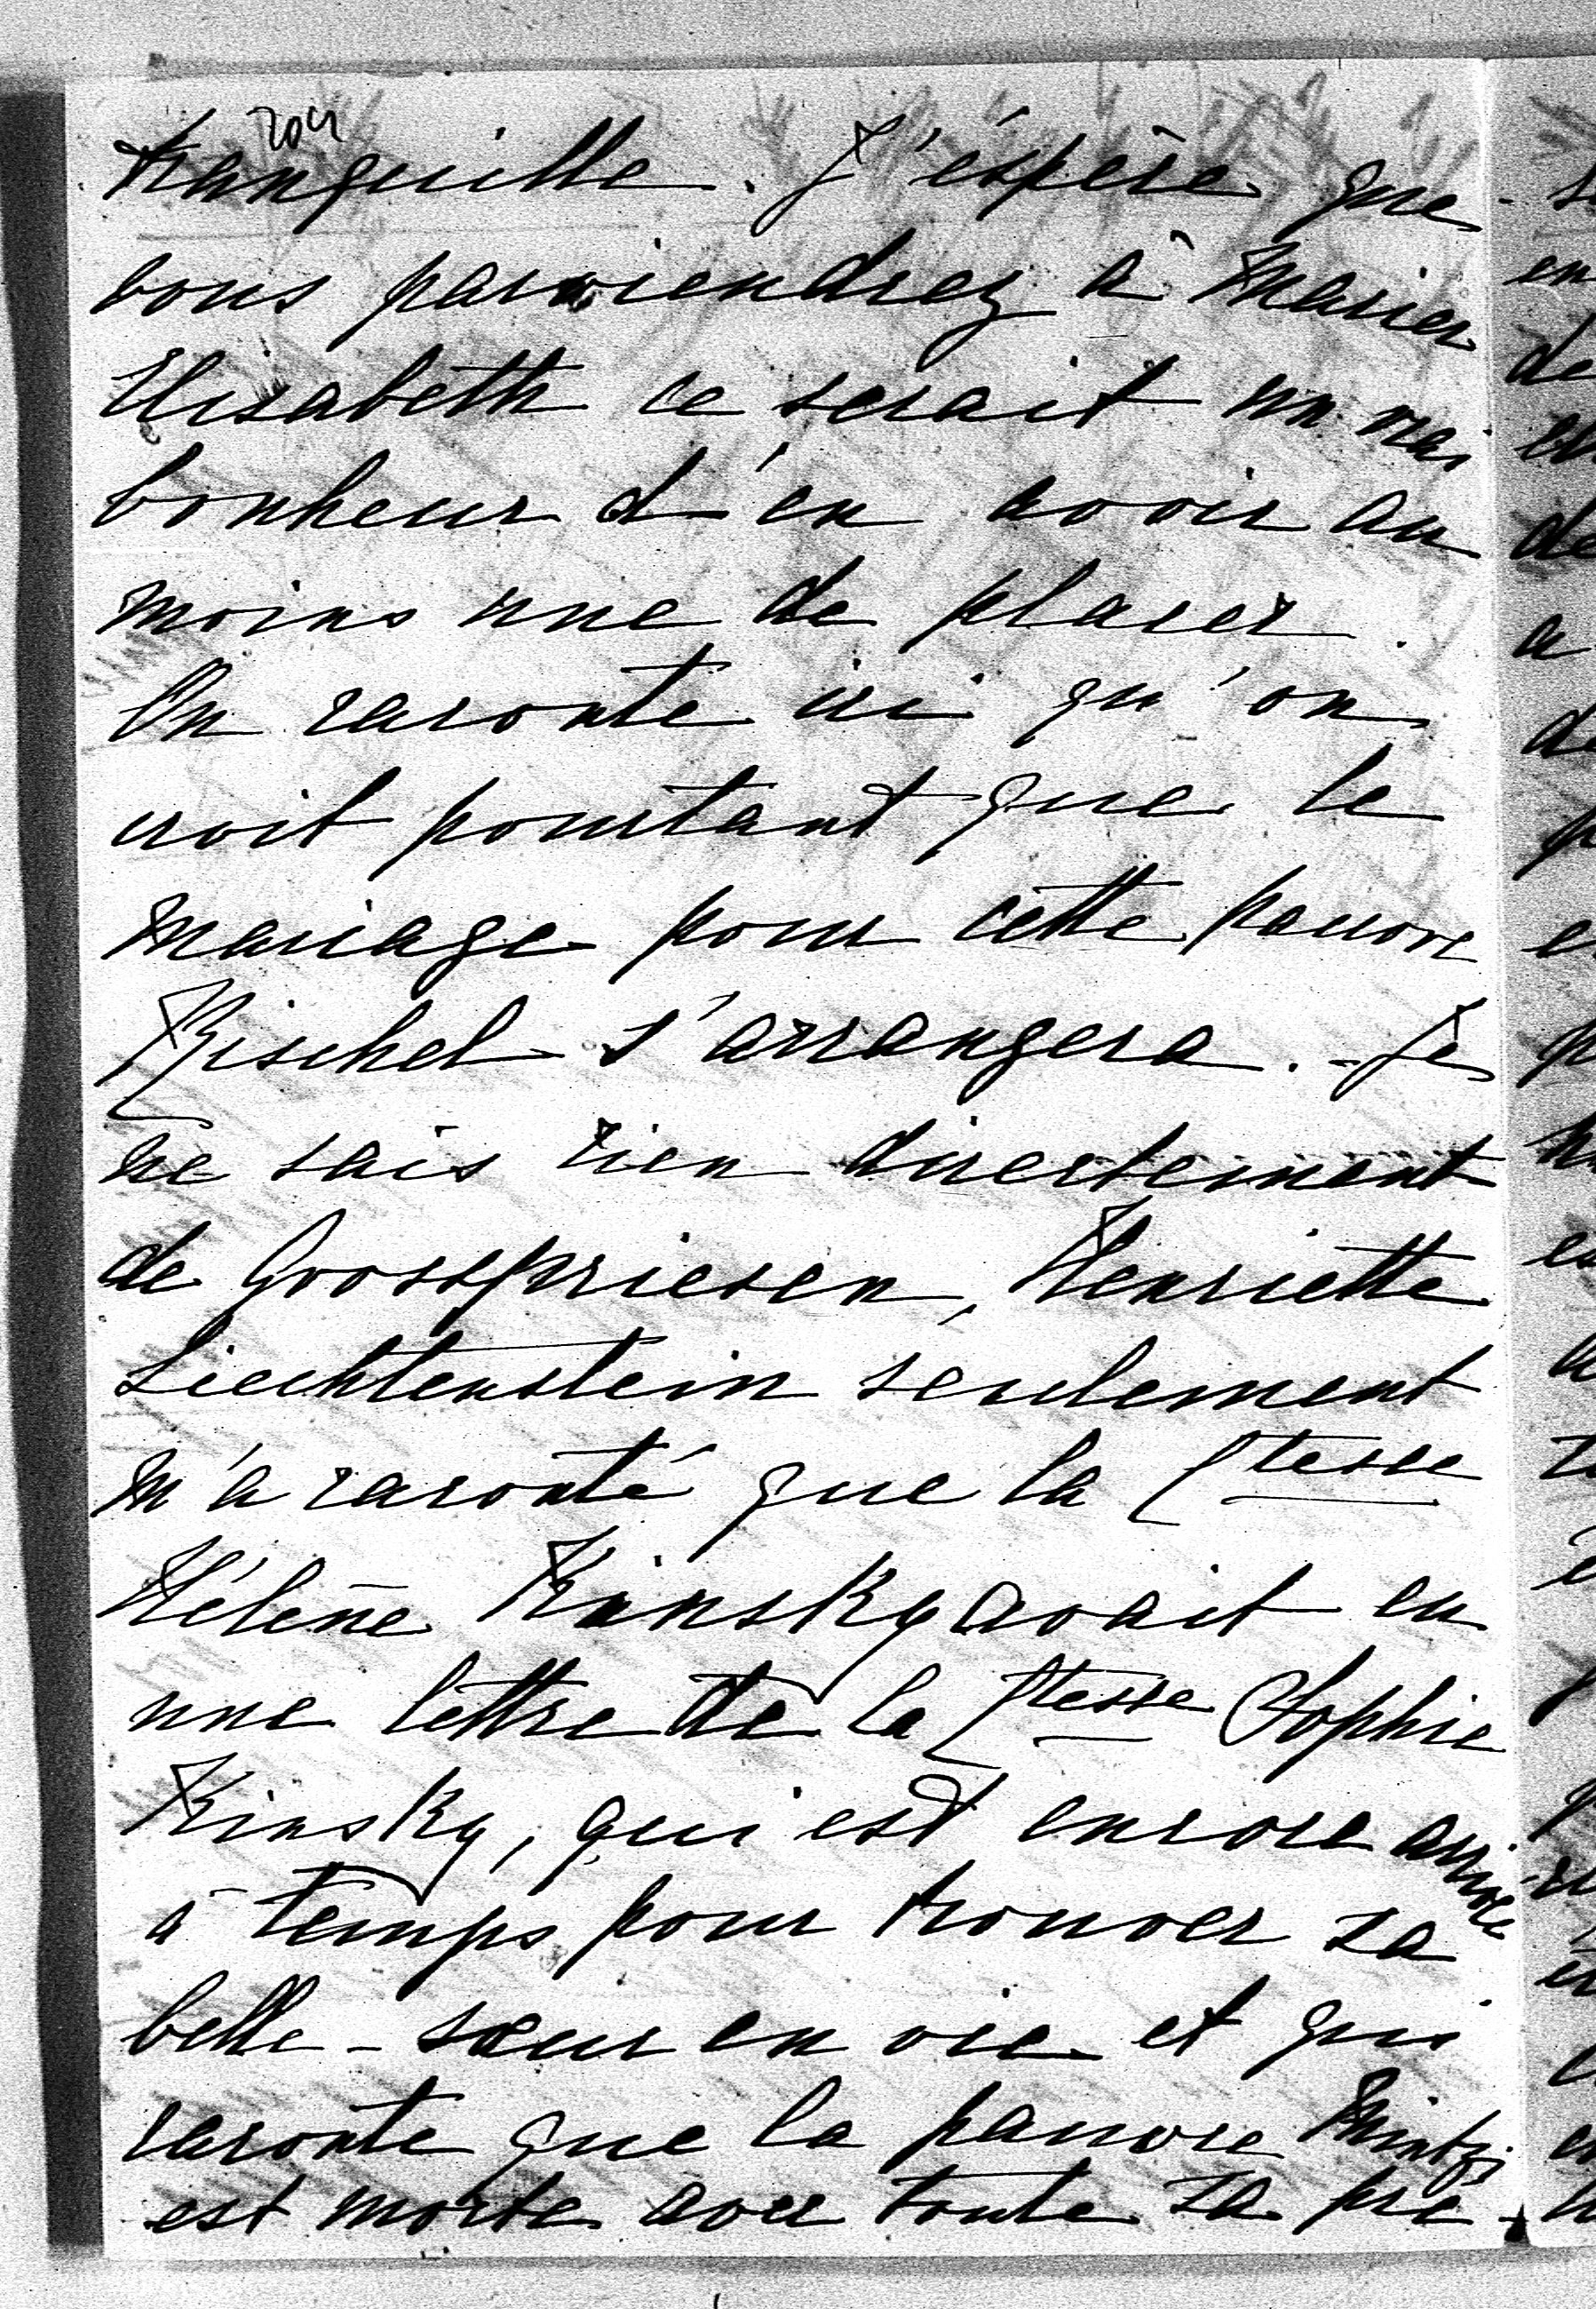 204
tranquille. J'éspère que
vous parviendrez à marier
Elisabeth ce serait un vrai
bonheur d'en avoir au
moins une de placer.
On raconte ici qu'on
croit pourtant que le
mariage pour cette pauvre
Rischel s'arrangera. - Je
ne sais rien directement
de Grosspriesen, Henriette
Liechtenstein seulement
m'a raconté que la Ctesse
Hélène Kinsky avait eu
une lettre de la Ctesse Sophie
Kinsky, qui est encore arrivée
à temps pour trouver sa
belle-sœur en vie et qui
raconte que la pauvre
est morte avec toute sa pré-